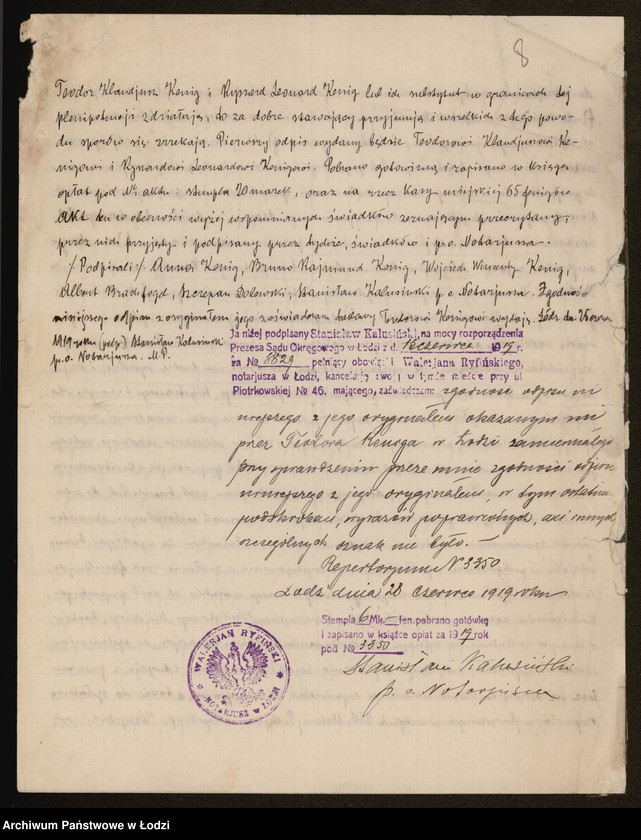 8
Teodor Klaudjusz Kenig i Ryszard Leonard Kenig lub ich substytut w granicach tej
plenipotencji zdziałają, to za dobre stawający przyjmują i wszelkich z tego powo-
du sporów się zrzekają. Pierwszy odpis wydany będzie Teodorowi Klaudjuszowi Ke-
nigowi i Ryszardowi Leonardowi Kenigowi. Pobrano gotowizną i zapisano w księgę
opłat pod № aktu: stempla 20 marek, oraz na rzecz kasy miejskiej 65 fenigów
Akt ten w obecności wyżej wspomnianych świadków zeznającym przeczytany,
przez nich przyjęty i podpisany przez tychże, świadków i p.o. Notarjusza.
/-/ Podpisali:/ Anna Kenig, Bruno Rajmund Kenig, Wojciech Wincenty Kenig,
Albert Szczepan Stanisław Kalusiński p.o. Notarjusza. Zgodność
niniejszego odpisu z oryginałem jego zaświadczam i Teodorowi Kenigowi wydaję. Łódź dn.
1919 roku (podp) Stanisław Kalusiński
p.o. Notarjusza. M.P.
Ja niżej podpisany Stanisław Kalusiński, na mocy rozporządzenia
Prezesa Sądu Okręgowego w Łodzi z d. 1919 r.
za № 8829 pełniący obowiązki Walerjana Ryfińskiego,
notarjusza w Łodzi, kancelarję swoją w tymże mieście przy ul.
Piotrkowskiej № 46. mającego, zaświadczam: zgodność odpisu ni
niejszego z jego oryginałem okazanym mi
przez Teodora Keniga w Łodzi zamieszkałego
przy sprawdzeniu przeze mnie zgodności odpisu
niniejszego z jego oryginałem, w tym ostatnim
podskrobań, wyrazów poprawionych, ani innych
szczególnych oznak nie było.—
Repertorjum N 3350.
Łódź dnia 28 Czerwca 1919 roku
Stempla 6 Mk. — fen. pobrano gotówkę
i zapisano w książce opłat za 1919 rok
pod № 3350
Stanisław Kalusiński
p. o. Notarjusza
WALERJAN RYFIŃSKI
NOTARJUSZ W ŁODZI
Archiwum Państwowe w Łodzi